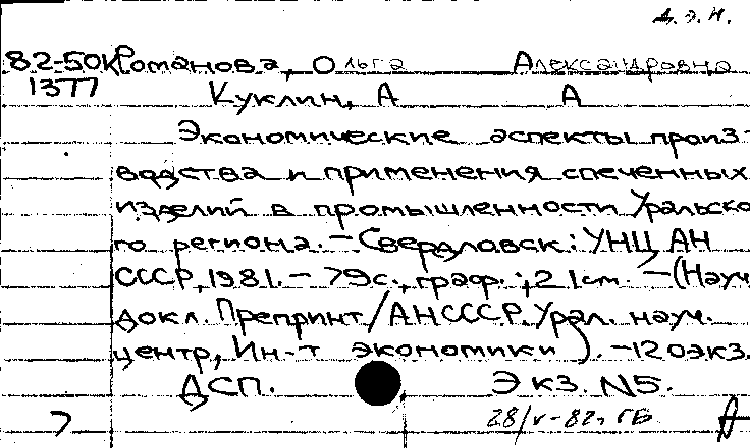 д.э.н.
82-50К Романова, Ольга Александровна
1377
Куклин, А А
Экономические аспекты произ-
водства и применения спеченных
изделий в промышленности Уральско
го региона. — Свердловск: УНЦ АН
СССР, 1981. — 79 с., граф.; 21 см. — (Науч.
докл. Препринт/АН СССР. Урал. науч.
центр, Ин-т экономики). — 120 экз.
ДСП. Экз. N5.
28/V-82г. ГБ